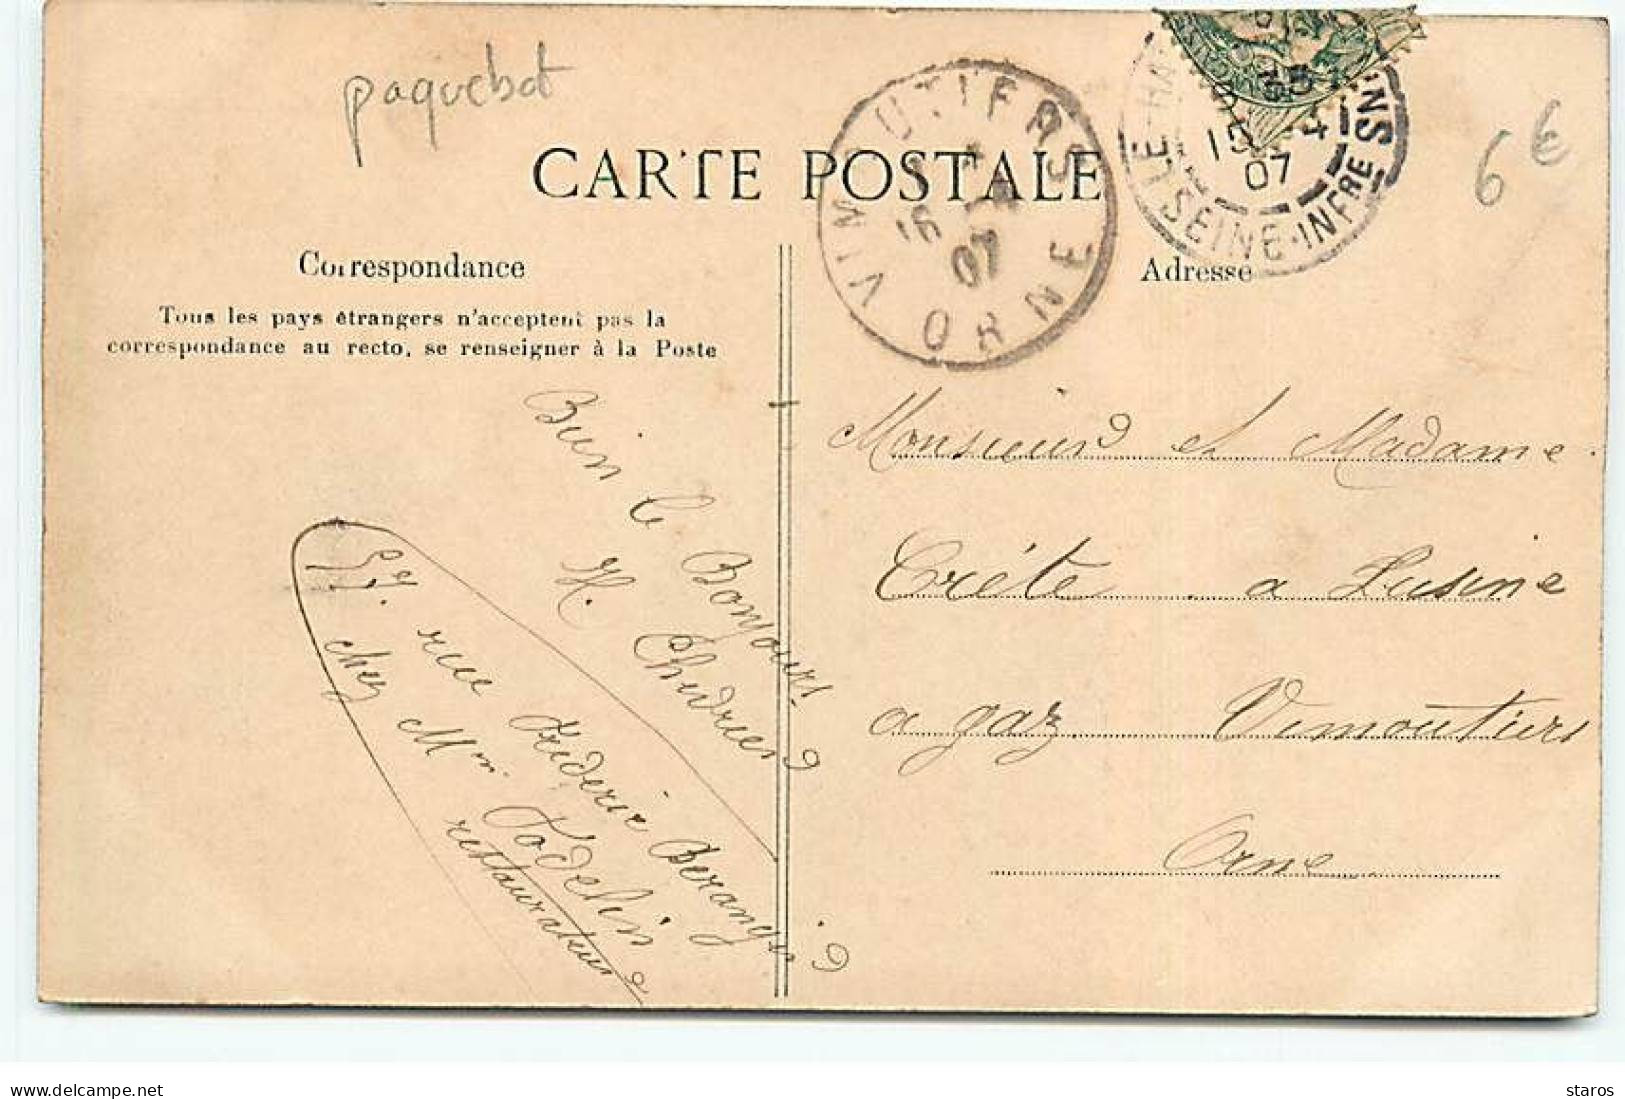 paquebot
6 €
CARTE POSTALE
VIMOUTIERS
16
07
ORNE
LE HA
15
07
SEINE-INFRE
Correspondance
Adresse
Tous les pays étrangers n'acceptent pas la
correspondance au recto, se renseigner à la Poste
Bien le Bonjours
H.
37. rue Frederic Beranger
chez Mr
restaurateur
Monsieur et Madame
Créte a Lusine
a gaz Vimoutiers
Orne
delcampe.net
staros